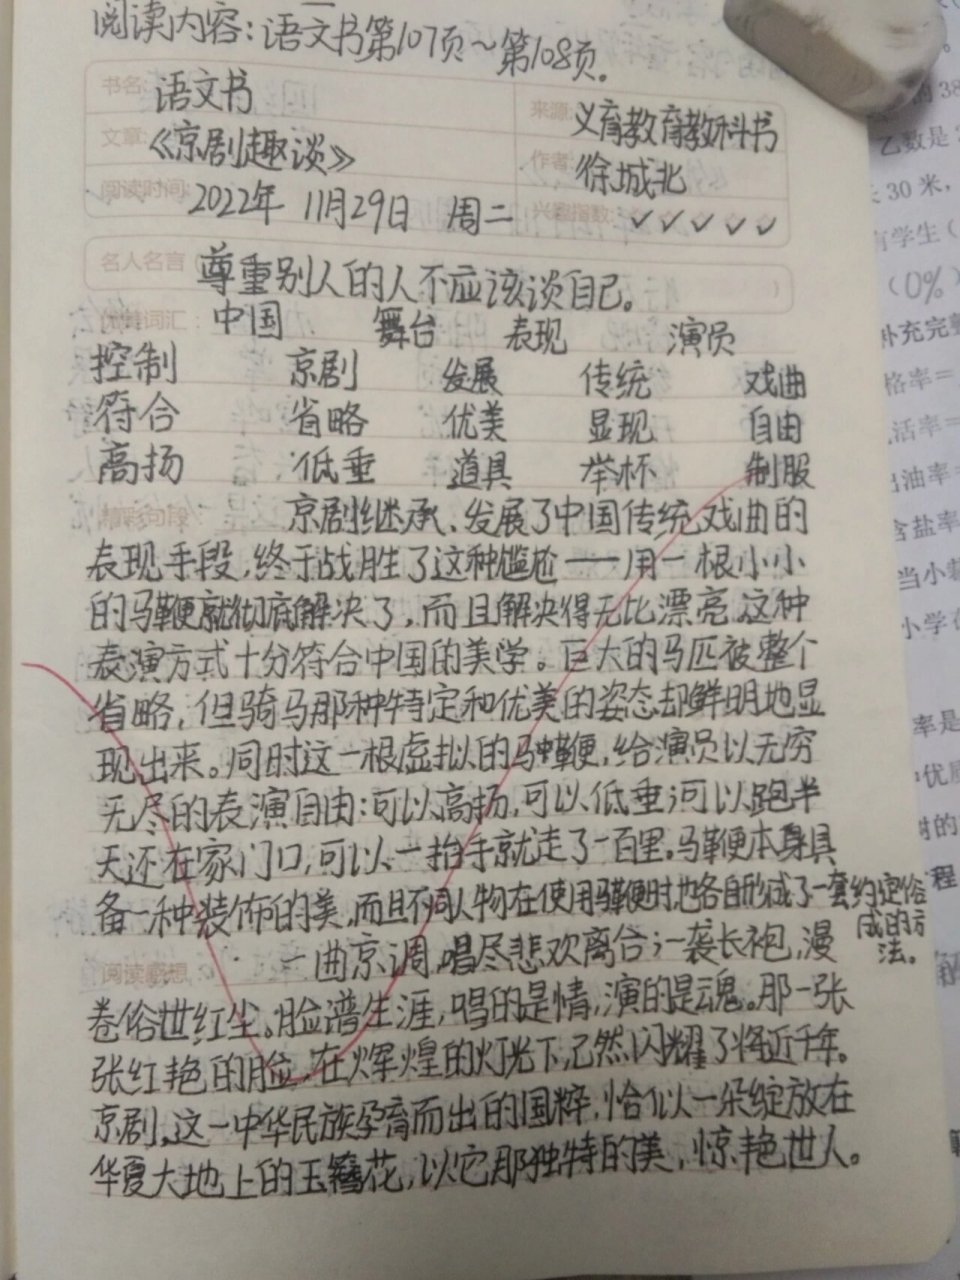 阅读内容:语文书第107页~第108页。
书名: 语文书
来源: 义育教育教科书
文章: 《京剧趣谈》
作者: 徐城北
阅读时间: 2022年 11月29日 周二
兴趣指数: ✓ ✓ ✓ ✓ ✓
名人名言 尊重别人的人不应该谈自己。
优美词汇: 中国 舞台 表现 演员
控制 京剧 发展 传统 戏曲
符合 省略 优美 显现 自由
高扬 低垂 道具 举杯 制服
精彩句段: 京剧继承、发展了中国传统戏曲的
表现手段,终于战胜了这种尴尬——用一根小小
的马鞭就彻底解决了,而且解决得无比漂亮。这种
表演方式十分符合中国的美学。巨大的马匹被整个
省略,但骑马那种特定和优美的姿态却鲜明地显
现出来。同时这一根虚拟的马鞭,给演员以无穷
无尽的表演自由:可以高扬,可以低垂,可以跑半
天还在家门口,可以一抬手就走了一百里。马鞭本身具
备一种装饰的美,而且不同人物在使用马鞭时也各自形成了一套约定俗
成的方
法。
阅读感想: 一曲京调,唱尽悲欢离合;一袭长袍,漫
卷俗世红尘。脸谱生涯,唱的是情,演的是魂。那一张
张红艳的脸,在辉煌的灯光下,已然闪耀了将近千年。
京剧,这一中华民族孕育而出的国粹,恰似一朵绽放在
华夏大地上的玉簪花,以它那独特的美,惊艳世人。
乙数是
30 米,
有学生(
(0%)
补充完整
格率=
活率=
出油率=
含盐率
当小
小学在
率是
优质
树的
程